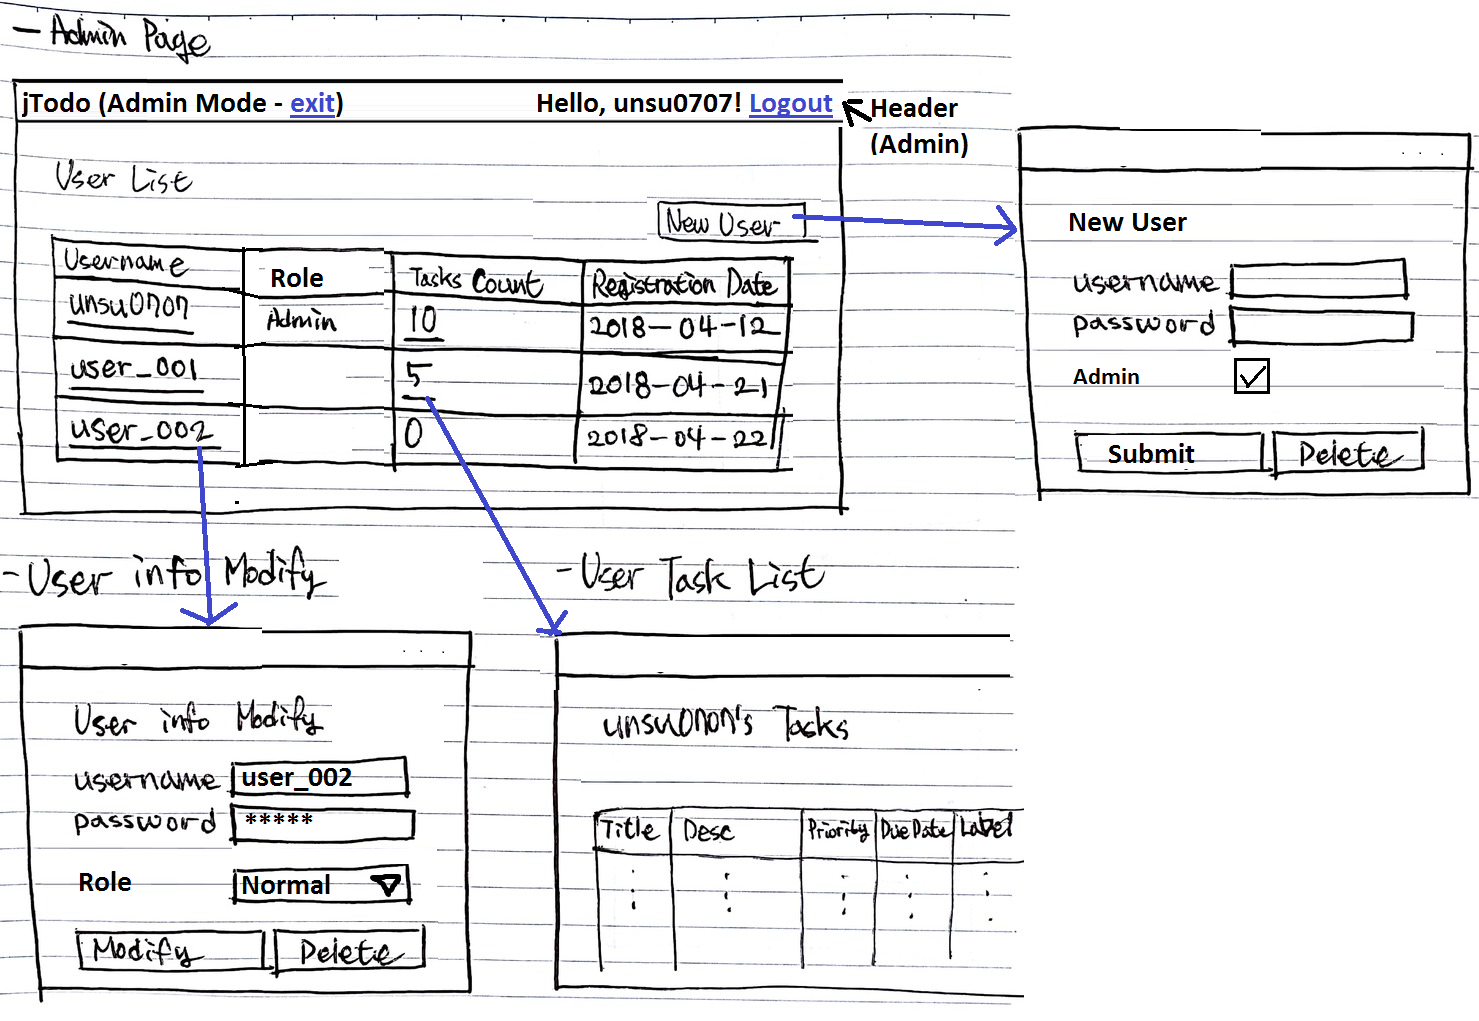 - Admin Page
jTodo (Admin Mode - exit) Hello, unsu0707! Logout
Header
(Admin)
User List
New User
Username Role Tasks Count Registration Date
unsu0707 Admin 10 2018-04-12
user_001 5 2018-04-21
user_002 0 2018-04-22
...
New User
username
password
Admin
Submit Delete
- User info Modify
...
User info Modify
username user_002
password *****
Role Normal
Modify Delete
- User Task List
unsu0707's Tasks
Title Desc Priority Due Date Label